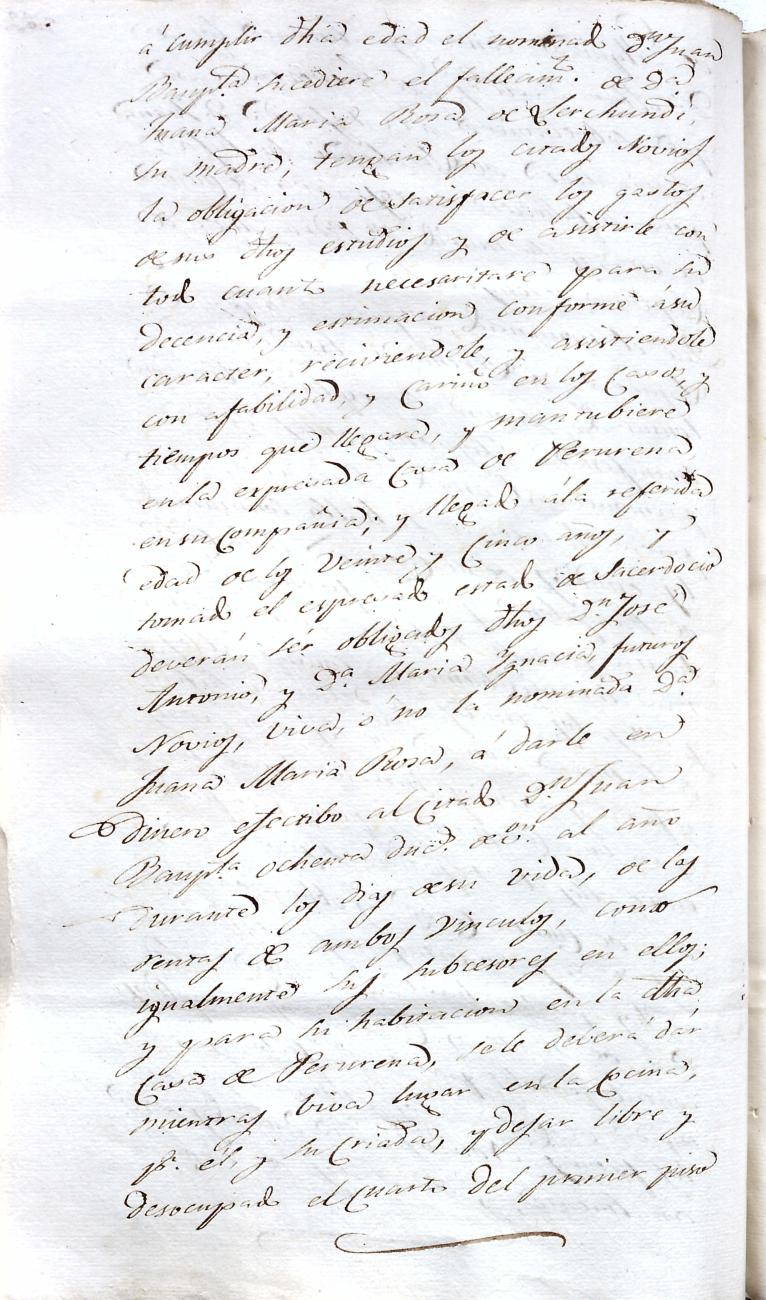 á cumplir dha edad el nominado Dn. Juan
Baupta. sucediere el fallecimto. de Da.
Juana Maria Rosa de Lerchundi,
su madre; tengan los citados Novios
la obligacion de satisfacer los gastos
de sus dhos estudios y de asistirle con
todo cuanto necesitare para su
decencia, y estimacion conforme ásu
caracter, reciviendole, y asistiendole
con afabilidad, y Cariño en los Casos, y
tiempos que llegare, y mantubiere
en la expresada Casa de Perurena
en su Compañia; y llegado ála referida
edad de los Veinte y Cinco años, y
tomado el espresado estado de Sacerdocio
deverán sér obligados dhos Dn. José
Antonio, y Da. Maria Ygnacia, futuros
Novios, viva, ó no la nominada Da.
Juana Maria Rosa, á darle en
dinero efectibo al Citado Dn. Juan
Baupta. ochenta ducs. de von. al año
durante los dias desu vida, de las
rentas de ambos vinculos, como
igualmente sus subcesores en ellos;
y para su habitacion en la dha
Casa de Perurena, sele deverá dár
mientras viva lugar en la Cocina,
pa. él, y su Criada, y dejar libre y
desocupado el Cuarto del primer piso